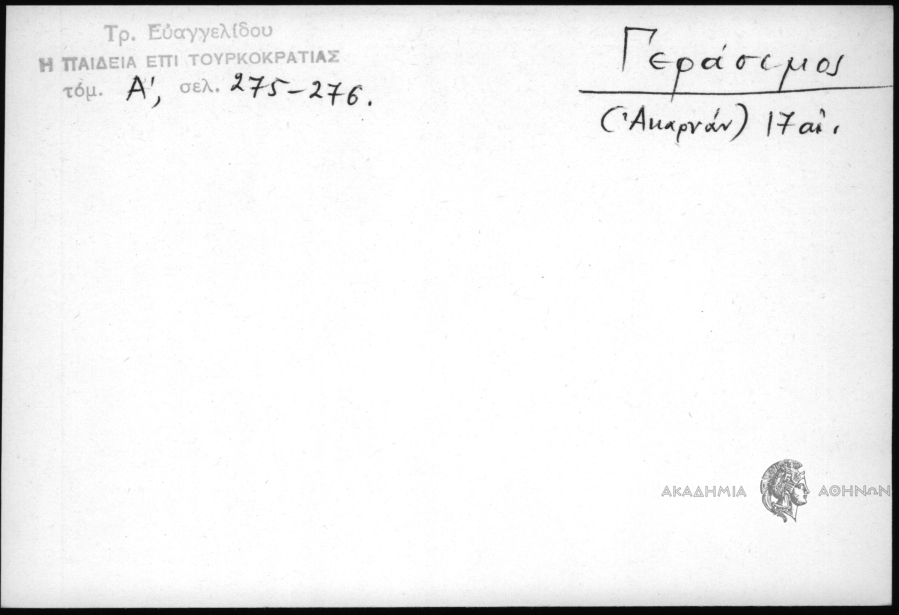 Τρ. Εὐαγγελίδου
Η ΠΑΙΔΕΙΑ ΕΠΙ ΤΟΥΡΚΟΚΡΑΤΙΑΣ
τόμ. Α', σελ. 275-276.
Γεράσιμος
(Ἀκαρνάν) 17 αἰ.
ΑΚΑΔΗΜΙΑ ΑΘΗΝΩΝ